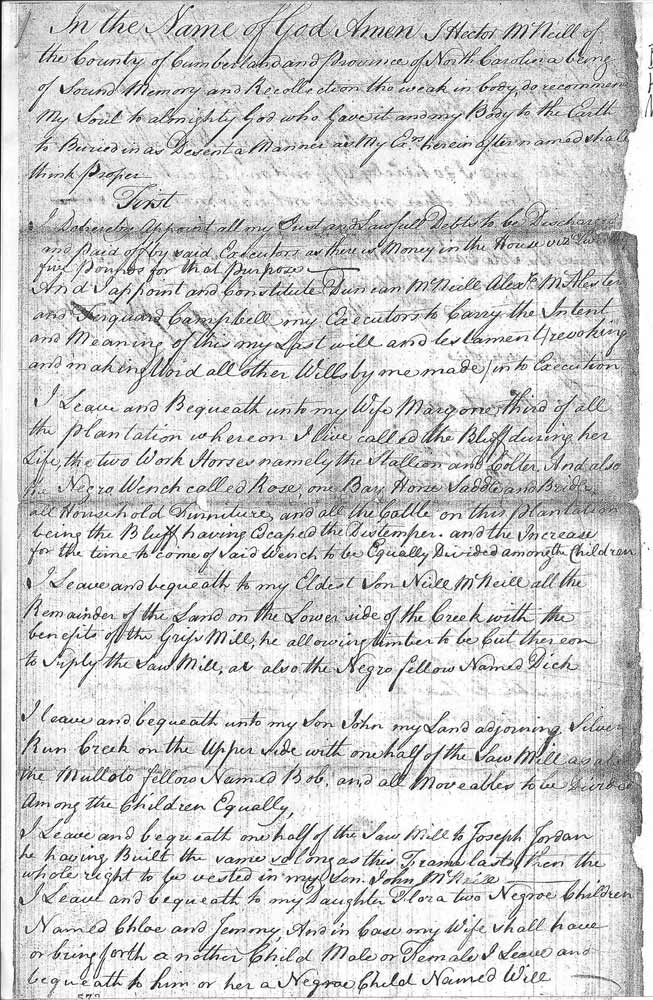 In the Name of God Amen I Hector McNeill of
the County of Cumberland and Province of North Carolina being
of Sound Memory and Recollection tho weak in body, do recommend
My Soul to almighty God who Gave it and my Body to the Earth
to Buried in as Desent a Manner as My Exrs herein after named shall
think Proper
First
I Dohereby Appoint all my Just and Lawfull Debts to be Discharged
and Paid off by said Executors as there is Money in the House vizt
five Pounds for that Purpose
And I appoint and Constitute Duncan McNeill Alexr McAlester
and Farquard Campbell my Executors to Carry the Intent
and Meaning of this my Last will and testament (revoking
and making Void all other Wills by me made) into Execution
I Leave and Bequeath unto my Wife Mary one third of all
the plantation whereon I live called the Bluff during her
Life, the two Work Horses namely the Stallion and Colter And also
the Negro Wench called Rose, one Bay Horse Saddle and Bridle,
all Household Furniture, and all the Cattle on this plantation
being the Bluff having Escaped the Distemper. and the Increase
for the time to come of Said Wench to be Equally Divided among the Children
I Leave and bequeath to my Eldest Son Neill McNeill all the
Remainder of the Land on the Lower side of the Creek with the
benefits of the Grist Mill, he allowing timber to be Cut thereon
to Suply the Saw Mill, as also the Negro fellow Named Dick
I leave and bequeath unto my Son John my Land adjoining Silver
Run Creek on the Upper side with one half of the Saw Mill as also
the Mulloto fellow Named Bob, and all Moveables to be Divided
Among the Children Equally,
I Leave and bequeath one half of the Saw Mill to Joseph Jordan
he having Built the same so long as this Frame last, then the
whole right to be vested in my Son John McNeill
I Leave and bequeath to my Daughter Flora two Negroe Children
Named Chloe and Jemmy, And in Case my Wife shall have
or bring forth another Child Male or Female I Leave and
bequeath to him or her a Negroe Child Named Will